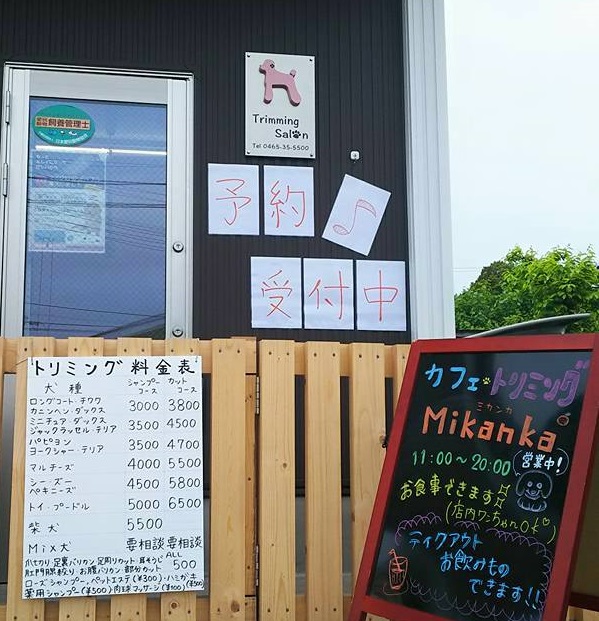 飼養管理士
Trimming
Salon
Tel 0465-35-5500
予約♪
受付中
トリミング料金表
犬種 シャンプーコース カットコース
ロングコート・チワワ
カニンヘン・ダックス 3000 3800
ミニチュア・ダックス
ジャックラッセル・テリア 3500 4500
パピヨン
ヨークシャー・テリア 3500 4700
マルチーズ 4000 5500
シー・ズー
ペキニーズ 4500 5800
トイ・プードル 5000 6500
柴犬 5500
Mix犬 要相談 要相談
爪切り・足裏バリカン・足周りカット・耳そうじ
肛門腺絞り・お腹バリカン・部分カット ALL 500
ローズシャンプー、ペットエステ(¥300)・ハミガキ(¥500)
薬用シャンプー(¥500)肉球マッサージ(¥100)
カフェ・トリミング
ミカンカ
Mikanka
11:00～20:00 営業中!
お食事できます
(店内ワンちゃんOK♡)
テイクアウト
お飲みもの
できます!!